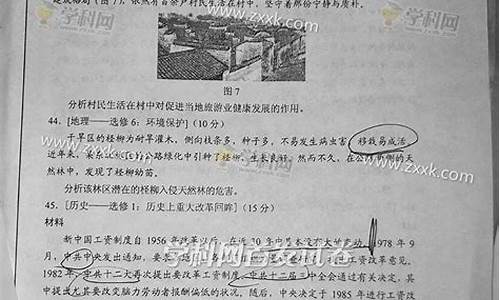 建成格局(图7),依然有百余户村民生活在村中,坚守着那份宁静与质朴。
图7
分析村民生活在村中对促进当地旅游业健康发展的作用。
44. [地理——选修6:环境保护](10分)
干旱区的柽柳为耐旱灌木,侧向枝条多,种子多,不易发生病虫害,移栽易成活。
近年来,某
公路绿化中引种了柽柳,生长良好。然而不久,在公
侧的天
然林中,发现了柽柳幼苗。
分析该林区潜在的柽柳入侵天然林的危害。
45. [历史——选修1:历史上重大改革回眸](15分)
材料
新中国工资制度自1956年改革以后,在近30年中基本没有大的变动。1978年9
月,中共中央发出通知,要
工资改革意见。
1982年,中共十二大再次提出要改革工资制度,中共十二届三中全会通过有关决定,其
中提出尤其要改变脑力劳动者报酬偏低的状况。随后,中央决定于1985年进行工资改
学科网
www.zxxk.com
学科网
www.zxxk.com
学科网
学科网首发试卷
www.zxxk.com